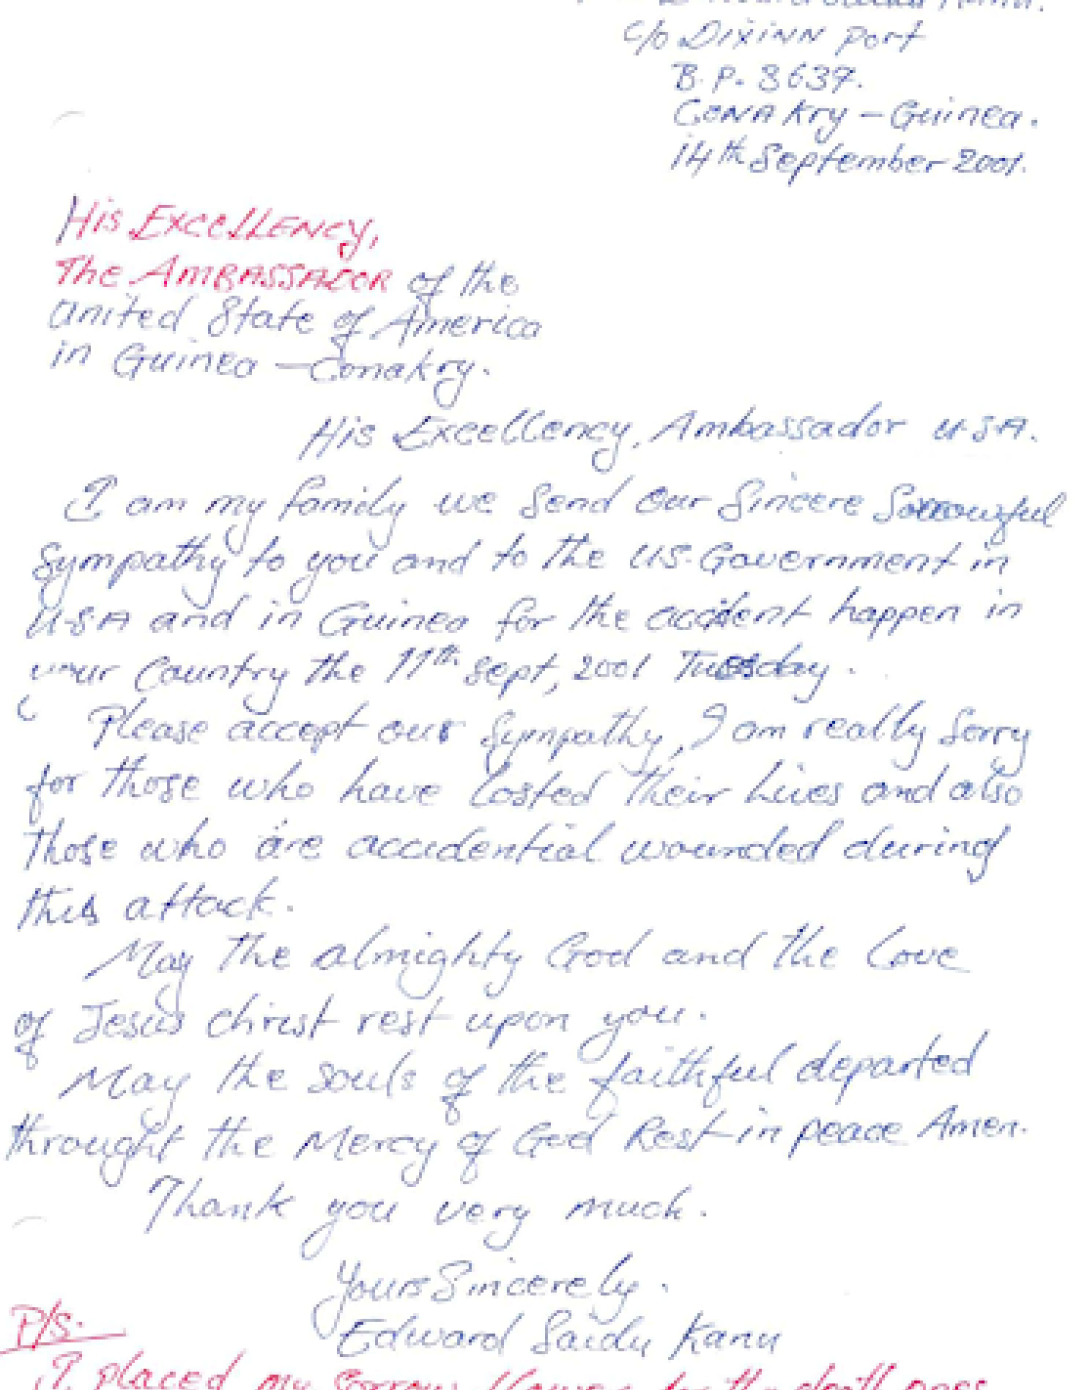 c/o Dixinn Port
B.P. 3637.
Conakry – Guinea.
14th September 2001.
His Excellency,
The AMBASSADOR of the
United State of America
in Guinea – Conakry.
His Excellency, Ambassador U.S.A.
I am my family we send our Sincere Sorrowful
Sympathy to you and to the US. Government in
U.S.A and in Guinea for the accident happen in
your Country the 11th Sept, 2001 Tuesday.
Please accept our Sympathy, I am really Sorry
for those who have losted their lives and also
those who are accidential wounded during
this attack.
May the almighty God and the Love
of Jesus christ rest upon you.
May the souls of the faithful departed
throught the Mercy of God Rest in peace Amen.
Thank you very much.
Yours Sincerely.
Edward Saidu Kanu
P/S.
I placed my sorrow